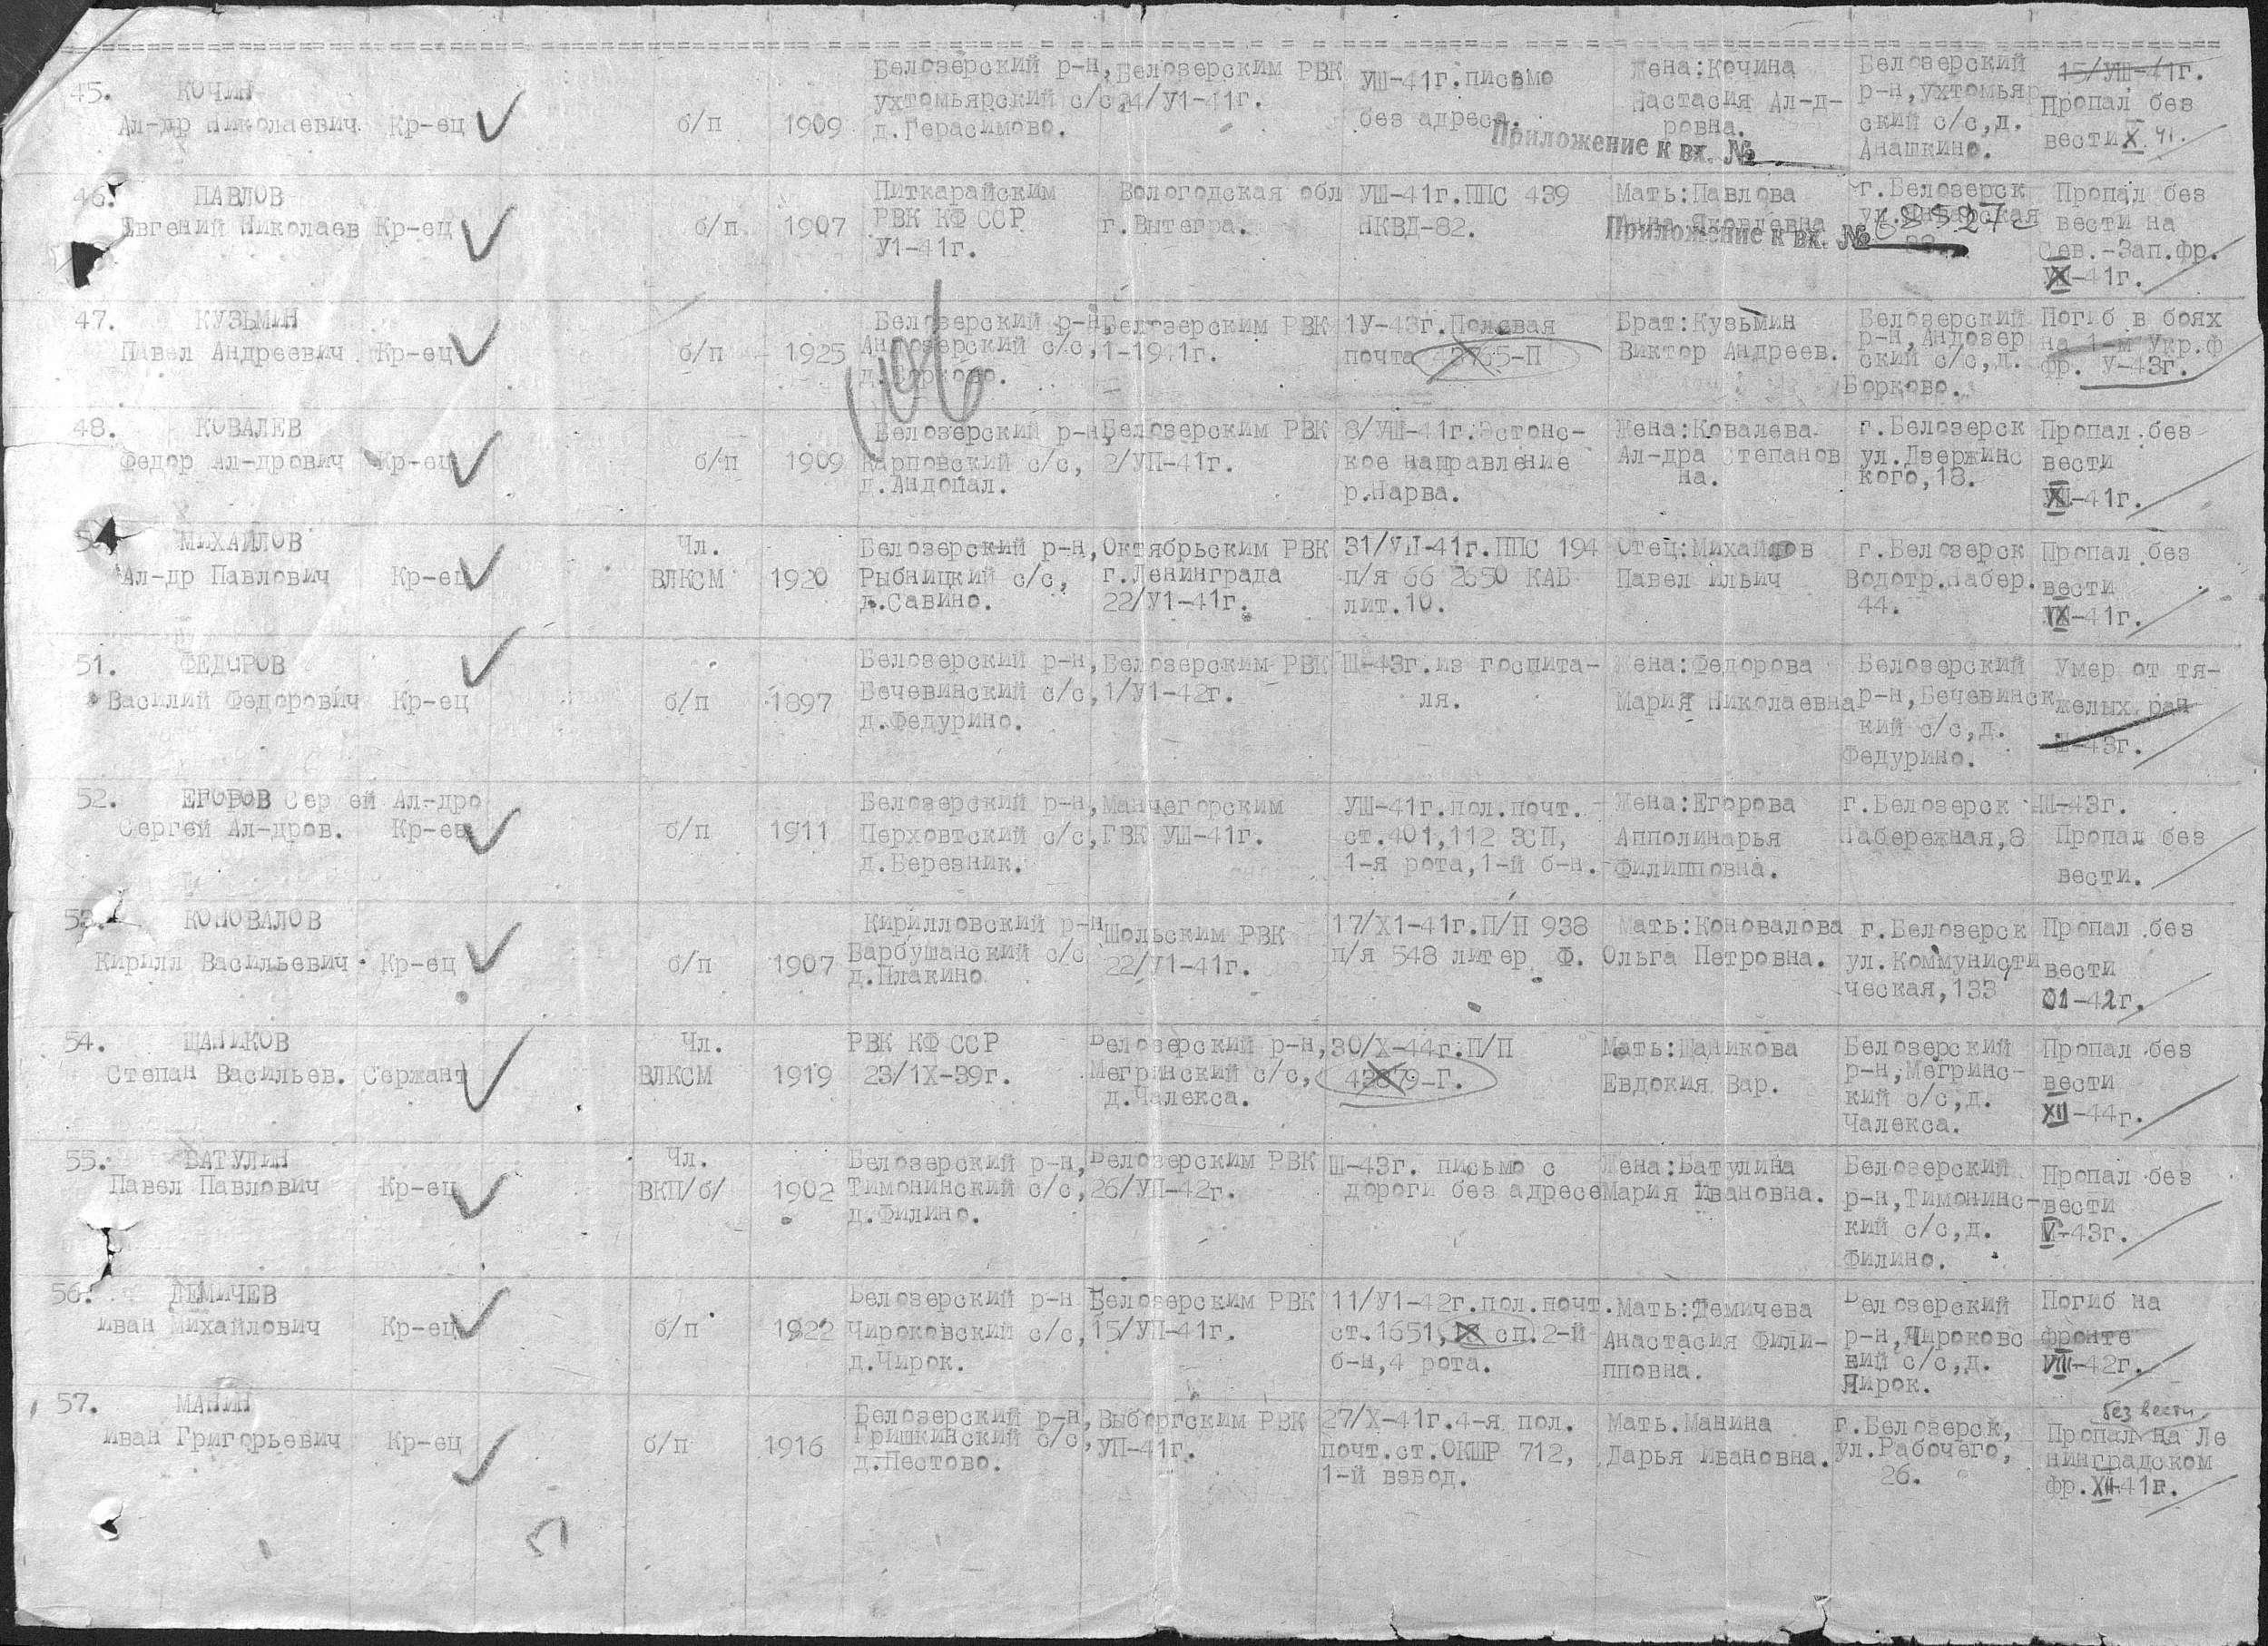 45. КОЧИН
Ал-др Николаевич Кр-ец б/п 1909
Белозерский р-н,
ухтомьярский с/с,
д.Герасимово.
Белозерским РВК
24/У1-41г.
УШ-41г.письмо
без адреса.
Жена:Кочина
Настасия Ал-д-
ровна.
Белозерский
р-н,ухтомьяр
ский с/с,д.
Анашкино.
15/УШ-41г.
Пропал без
вести X 41.
Приложение к вх. №
46. ПАВЛОВ
Евгений Николаев Кр-ец б/п 1907
Питкарайским
РВК КФ ССР
У1-41г.
Вологодская обл
г.Вытегра.
УШ-41г.ППС 439
НКВД-82.
Мать:Павлова
Анна Яковлевна
г.Белозерск
Пропал без
вести на
Сев.-Зап.фр.
-41г.
Приложение к вх. №
47. КУЗЬМИН
Павел Андреевич Кр-ец б/п 1925
Белозерский р-н
Андозерский с/с,
д.Борково.
Белозерским РВК
1-1941г.
1У-43г.Полевая
почта
Брат:Кузьмин
Виктор Андреев.
Белозерский
р-н,Андозер
ский с/с,д.
Борково.
Погиб в боях
на 1-м Укр.ф
фр. У-43г.
48. КОВАЛЕВ
Федор Ал-дрович Кр-ец б/п 1909
Белозерский р-н,
Карповский с/с,
д.Андопал.
Белозерским РВК
2/УП-41г.
8/УШ-41г.Эстонс-
кое направление
р.Нарва.
Жена:Ковалева
Ал-дра Степанов
на.
г.Белозерск
ул.Дзержинс
кого,18.
Пропал без
вести
-41г.
МИХАЙЛОВ
Ал-др Павлович Кр-ец
Чл.
ВЛКСМ 1920
Белозерский р-н,
Рыбницкий с/с,
д.Савино.
Октябрьским РВК
г.Ленинграда
22/У1-41г.
31/УП-41г.ППС 194
п/я 66 2650 КАБ
лит.10.
Отец:Михайлов
Павел Ильич
г.Белозерск
Водотр.Набер.
44.
Пропал без
вести
IX-41г.
51. ФЕДОРОВ
Василий Федорович Кр-ец б/п 1897
Белозерский р-н,
Бечевинский с/с,
д.Федурино.
Белозерским РВК
1/У1-42г.
Ш-43г.из госпита-
ля.
Жена:Федорова
Мария Николаевна
Белозерский
р-н,Бечевинск
кий с/с,д.
Федурино.
Умер от тя-
желых ран
Ш-43г.
52. ЕГОРОВ Сергей Ал-дро
Сергей Ал-дров. Кр-ец б/п 1911
Белозерский р-н,
Перховтский с/с,
д.Березник.
Манчегорским
ГВК УШ-41г.
УШ-41г.пол.почт.
ст.401,112 ЗСП,
1-я рота,1-й б-н.
Жена:Егорова
Апполинарья
Филипповна.
г.Белозерск
Набережная,8
Ш-43г.
Пропал без
вести.
53. КОНОВАЛОВ
Кирилл Васильевич Кр-ец б/п 1907
Кирилловский р-н
Варбушанский с/с
д.Плакино
Шольским РВК
22/У1-41г.
17/Х1-41г.П/П 938
п/я 548 литер Ф.
Мать:Коновалова
Ольга Петровна.
г.Белозерск
ул.Коммунисти
ческая,133
Пропал без
вести
01-42г.
54. ЩАНИКОВ
Степан Васильев. Сержант
Чл.
ВЛКСМ 1919
РВК КФ ССР
23/1Х-39г.
Белозерский р-н,
Мегринский с/с,
д.Чалекса.
30/Х-44г.П/П
Мать:Щаникова
Евдокия Вар.
Белозерский
р-н,Мегринс-
кий с/с,д.
Чалекса.
Пропал без
вести
XII-44г.
55. БАТУЛИН
Павел Павлович Кр-ец
Чл.
ВКП/б/ 1902
Белозерский р-н,
Тимонинский с/с,
д.Филино.
Белозерским РВК
26/УП-42г.
Ш-43г. письмо с
дороги без адресе
Жена:Батулина
Мария Ивановна.
Белозерский
р-н,Тимонинс-
кий с/с,д.
Филино.
Пропал без
вести
V-43г.
56. ДЕМИЧЕВ
Иван Михайлович Кр-ец б/п 1922
Белозерский р-н
Чироковский с/с,
д.Чирок.
Белозерским РВК
15/УП-41г.
11/У1-42г.пол.почт.
ст.1651, сп.2-й
б-н,4 рота.
Мать:Демичева
Анастасия Фили-
пповна.
Белозерский
р-н,Чироковс
кий с/с,д.
Чирок.
Погиб на
фронте
VIII-42г.
57. МАНИН
Иван Григорьевич Кр-ец б/п 1916
Белозерский р-н,
Гришкинский с/с,
д.Пестово.
Выборгским РВК
УП-41г.
27/Х-41г.4-я пол.
почт.ст.ОКШР 712,
1-й взвод.
Мать.Манина
Дарья Ивановна.
г.Белозерск,
ул.Рабочего,
26.
без вести
Пропал на Ле
нинградском
фр.XII-41г.